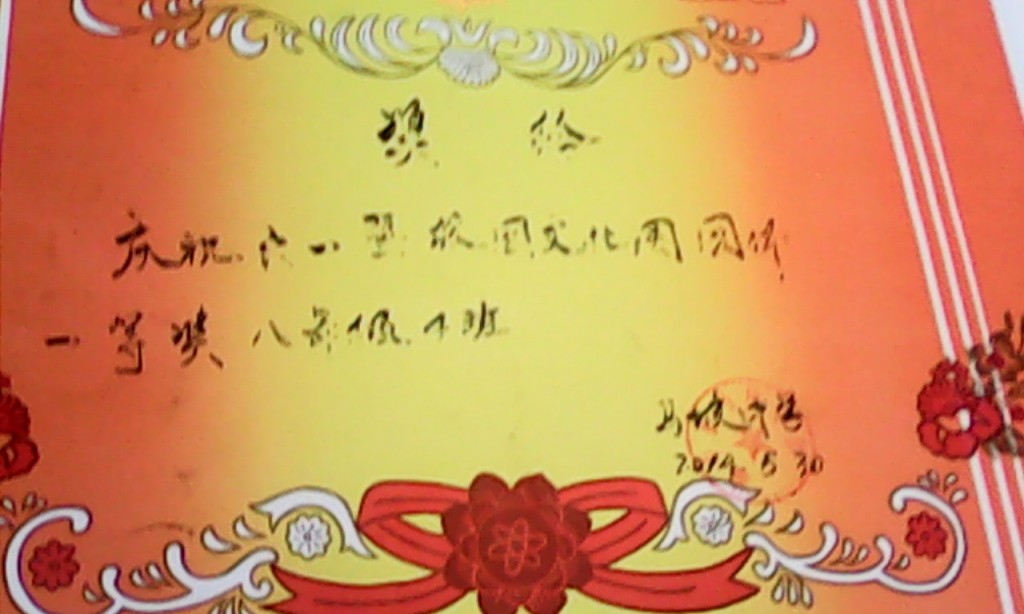 奖给
庆祝六一暨校园文化周团体
一等奖 八年级 4班
马坡中学
2014.5.30